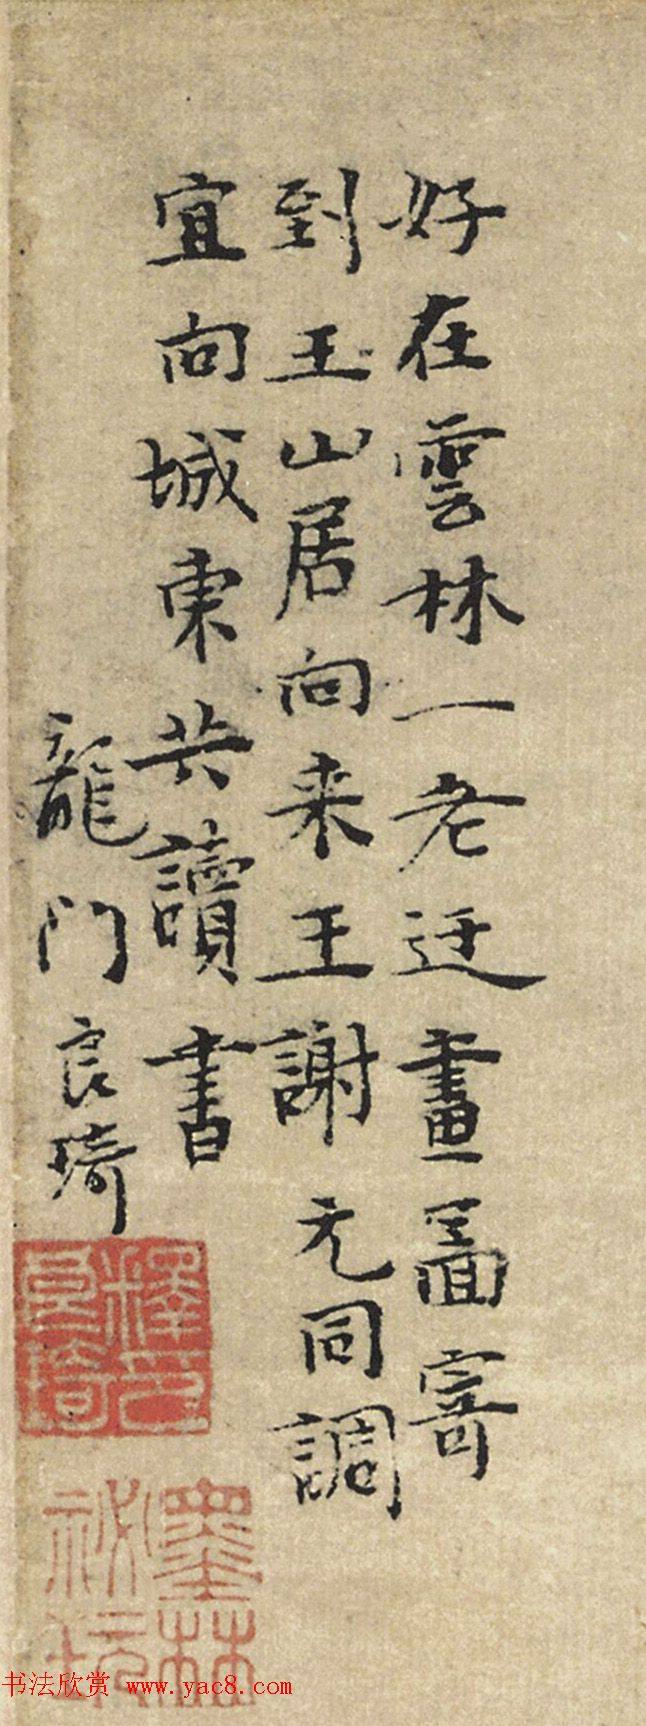 好在雲林一老迂畫啚寄
到王山居向来王謝元同調
宜向城東共讀書
龍門良琦
釋良琦
墨林祕玩
书法欣赏 www.yac8.com